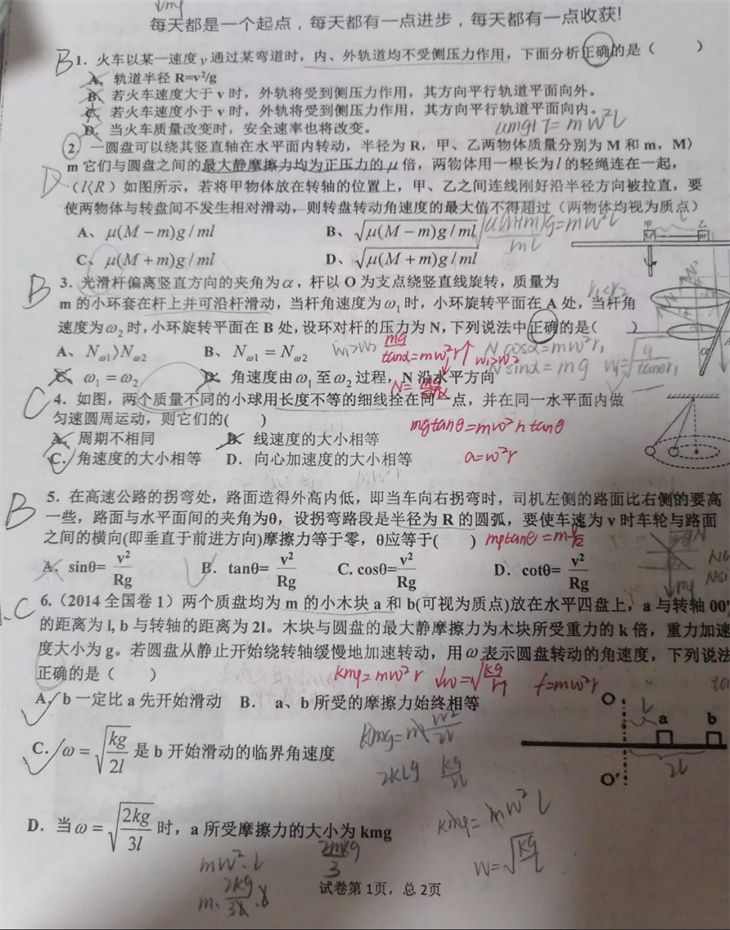 每天都是一个起点，每天都有一点进步，每天都有一点收获!
B 1．火车以某一速度 v 通过某弯道时，内、外轨道均不受侧压力作用，下面分析正确的是（ ）
A、轨道半径 R=v²/g
B、若火车速度大于 v 时，外轨将受到侧压力作用，其方向平行轨道平面向外。
C、若火车速度小于 v 时，外轨将受到侧压力作用，其方向平行轨道平面向内。
D、当火车质量改变时，安全速率也将改变。
umg+T=mw²l
2 一圆盘可以绕其竖直轴在水平面内转动，半径为 R，甲、乙两物体质量分别为 M 和 m，M〉
m 它们与圆盘之间的最大静摩擦力均为正压力的 μ 倍，两物体用一根长为 l 的轻绳连在一起，
D （l〈R）如图所示，若将甲物体放在转轴的位置上，甲、乙之间连线刚好沿半径方向被拉直，要
使两物体与转盘间不发生相对滑动，则转盘转动角速度的最大值不得超过（两物体均视为质点）
A、μ(M－m)g / ml B、√μ(M－m)g / ml
C、μ(M＋m)g / ml D、√μ(M＋m)g / ml
甲 乙
B 3．光滑杆偏离竖直方向的夹角为 α，杆以 O 为支点绕竖直线旋转，质量为
m 的小环套在杆上并可沿杆滑动，当杆角速度为 ω₁ 时，小环旋转平面在 A 处，当杆角
速度为 ω₂ 时，小环旋转平面在 B 处，设环对杆的压力为 N，下列说法中正确的是( )
A、Nω1〉Nω2 B、Nω1 = Nω2
w₁>w₂ mg/tanα=mw²r↑ w₁>w₂
Ncosα=mw²r₁
Nsinα=mg
C、ω₁ = ω₂ D、角速度由 ω₁ 至 ω₂ 过程，N 沿水平方向
C 4．如图，两个质量不同的小球用长度不等的细线拴在同一点，并在同一水平面内做
匀速圆周运动，则它们的( )
mgtanθ=mw²htanθ
A．周期不相同 B．线速度的大小相等
C．角速度的大小相等 D．向心加速度的大小相等
a=w²r
B 5．在高速公路的拐弯处，路面造得外高内低，即当车向右拐弯时，司机左侧的路面比右侧的要高
一些，路面与水平面间的夹角为θ，设拐弯路段是半径为 R 的圆弧，要使车速为 v 时车轮与路面
之间的横向(即垂直于前进方向)摩擦力等于零，θ应等于( )
A．sinθ= v²/Rg B．tanθ= v²/Rg C. cosθ= v²/Rg D．cotθ= v²/Rg
6.（2014 全国卷 1）两个质盘均为 m 的小木块 a 和 b(可视为质点)放在水平四盘上，a 与转轴 00'
的距离为 l, b 与转轴的距离为 2l。木块与圆盘的最大静摩擦力为木块所受重力的 k 倍，重力加速
度大小为 g。若圆盘从静止开始绕转轴缓慢地加速转动，用 ω 表示圆盘转动的角速度，下列说法
正确的是（ ）
kmg=mw²r w=√kg/r f=mw²r
A．b 一定比 a 先开始滑动 B．a、b 所受的摩擦力始终相等
C．ω = √kg/2l 是 b 开始滑动的临界角速度
O a b
2l
O'
kmg=mw²l
D．当 ω = √2kg/3l 时，a 所受摩擦力的大小为 kmg
mw²·l
2mkg/3
w=√kg/l
试卷第 1页，总 2页